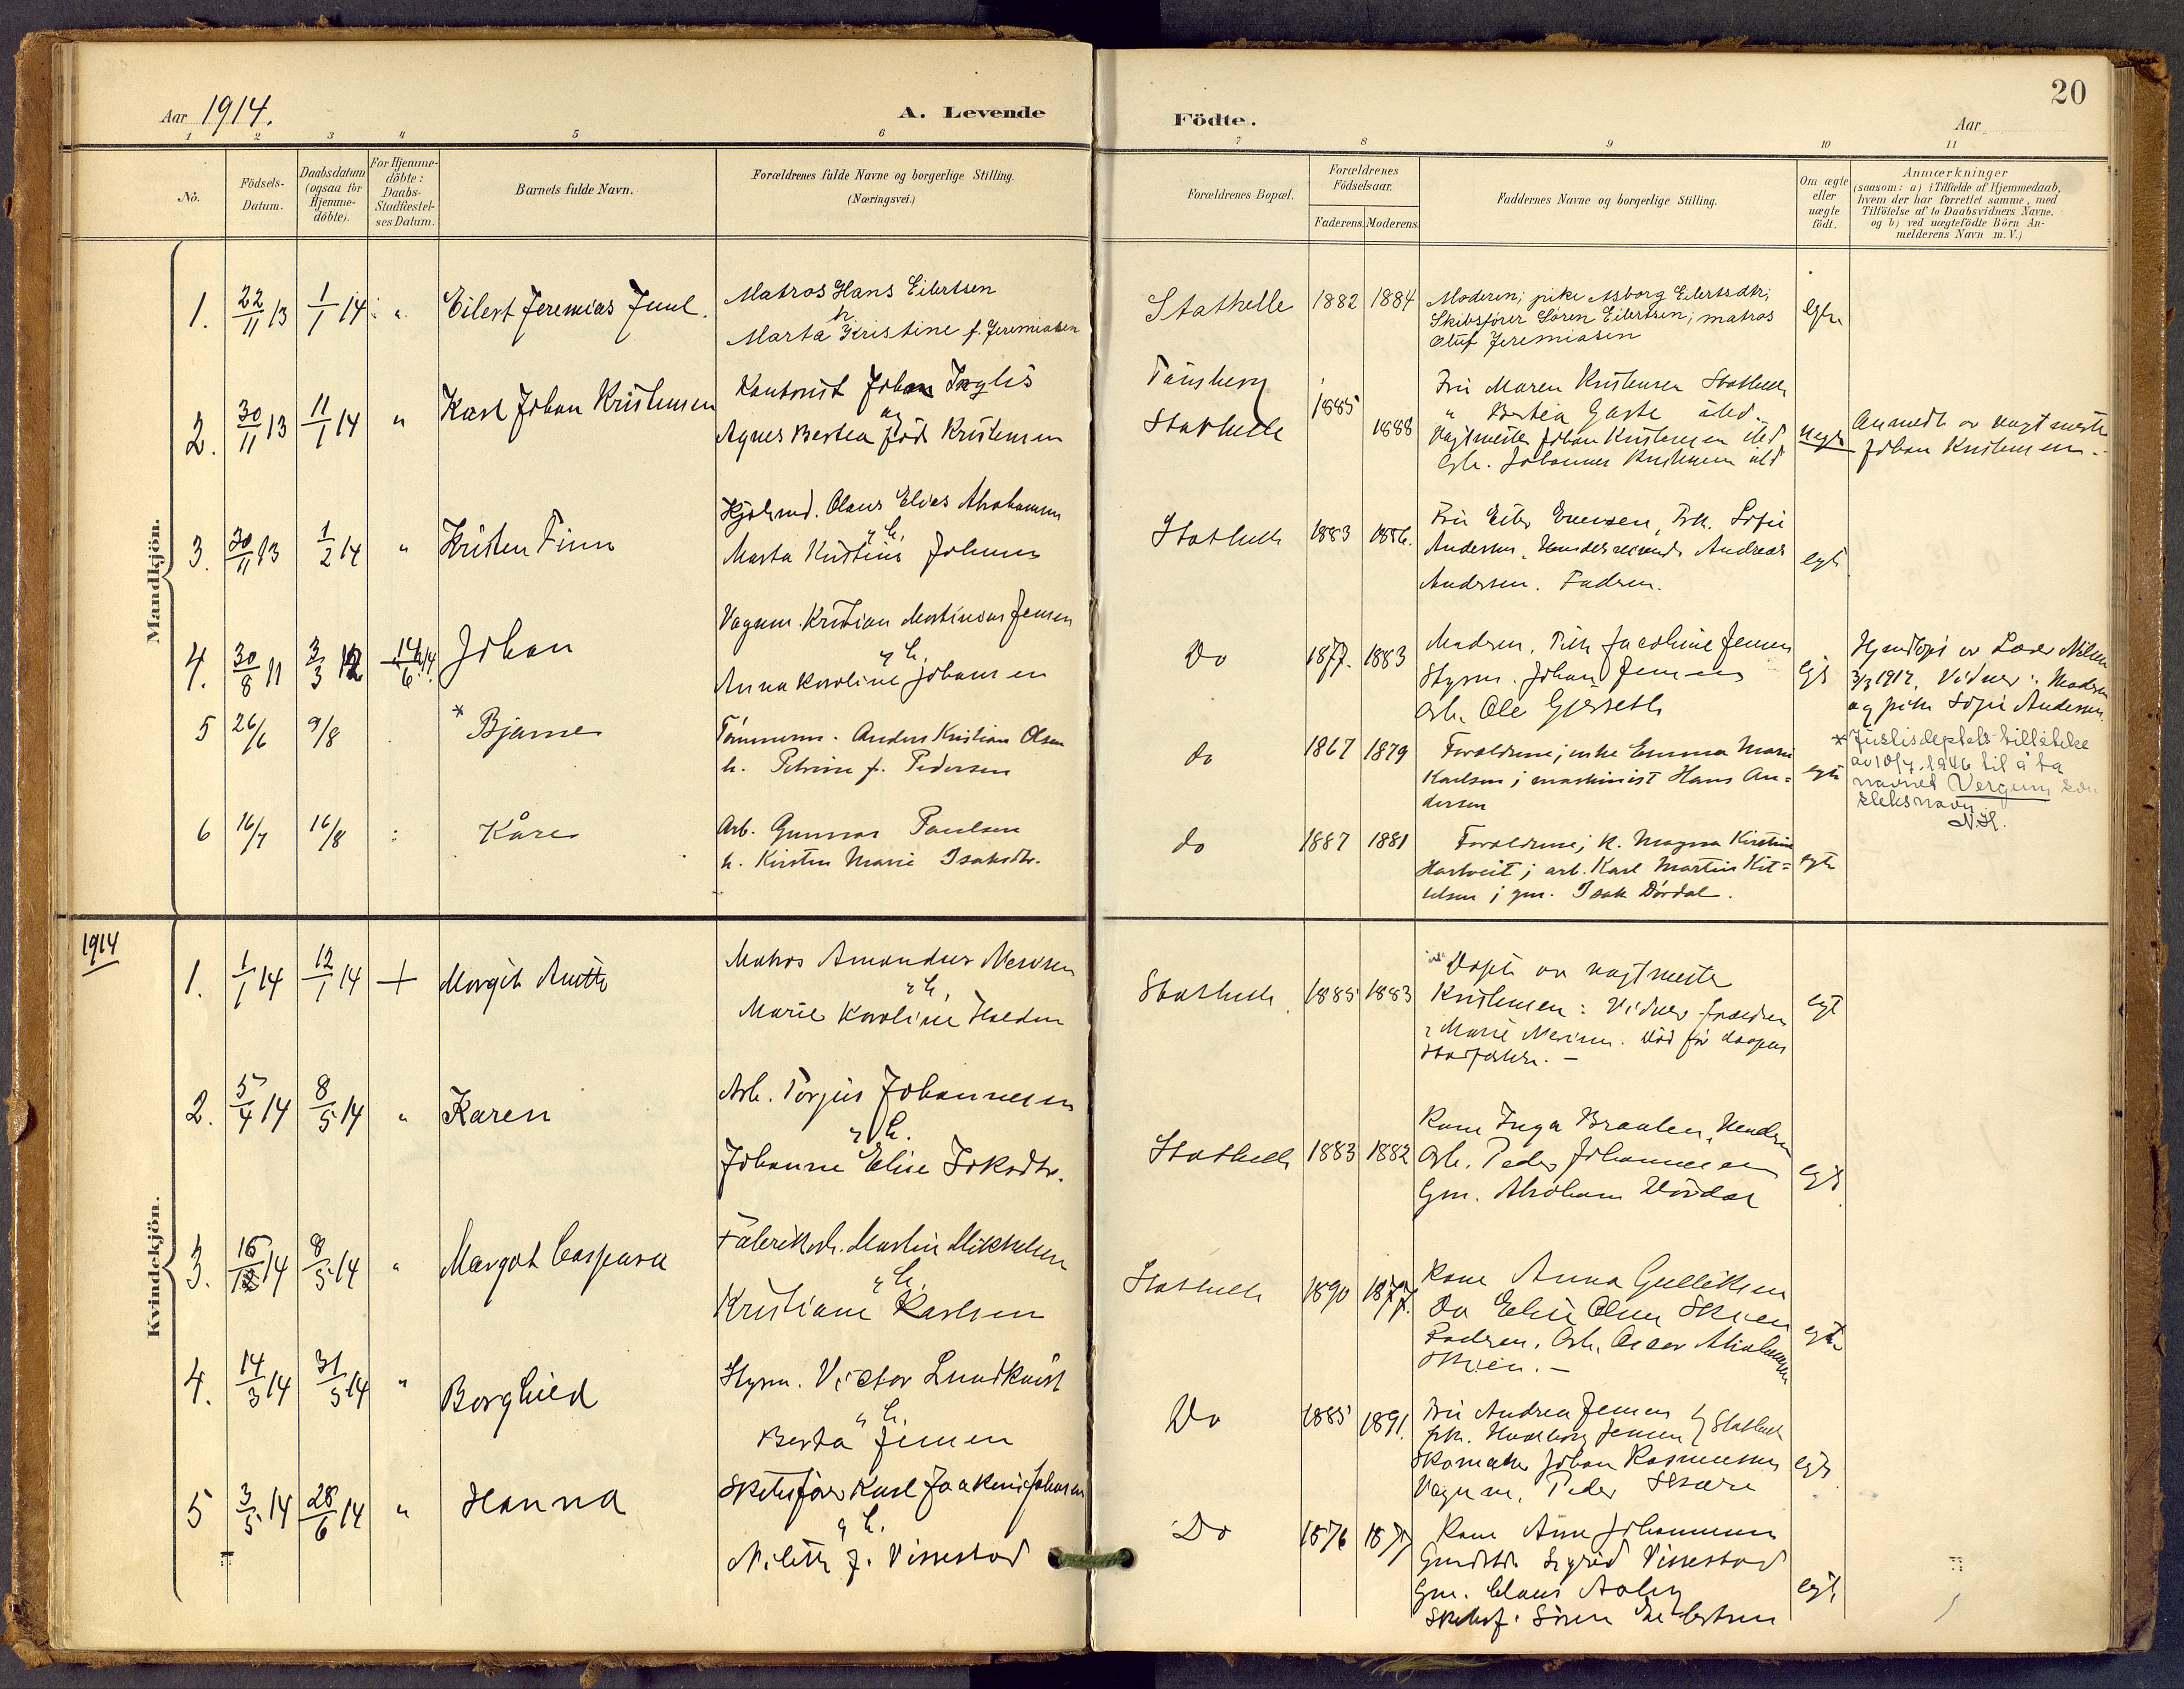 20
Aar 1914.
A. Levende
Födte.
Aar
1 2 3 4 5 6 7 8 9 10 11
No.
Födsels-
Datum.
Daabsdatum
(ogsaa for
Hjemme-
döbte).
For Hjemme-
döbte:
Daabs-
Stadfæstel-
ses Datum.
Barnets fulde Navn.
Forældrenes fulde Navne og borgerlige Stilling.
(Næringsvei.)
Forældrenes Bopæl.
Forældrenes
Födselsaar.
Faderens. Moderens.
Faddernes Navne og borgerlige Stilling.
Om ægte
eller
uægte
födt.
Anmærkninger
(saasom: a) i Tilfælde af Hjemmedaab,
hvem der har forrettet samme, med
Tilföielse af to Daabsvidners Navne.
og b) ved uægtefödte Börn An-
melderens Navn m.V.)
Mandkjön.
1. 22/11 13 1/1 14 " Eilert Jeremias Juul.
Matros Hans Eilertsen
h.
Marta Kristine f. Jeremiasen
Stathelle 1882 1884
Moderen; pike Asborg Eilertsdtr;
Skibsfører Søren Eilertsen; matros
Oluf Jeremiasen
egte
2. 30/11 13 11/1 14 " Karl Johan Kristensen
Kontorist Johan Inglis
og
Agnes Bertea född Kristensen
Tönsberg
Stathelle
1885 1888
Fru Maren Kristensen Stathelle
" Bertea Gaste
Vagtmester Johan Kristensen
Arb. Johannes Kristensen
uegte
Anmeldt av vagtmester
Johan Kristensen.
3. 30/11 13 1/2 14 " Kristen Finn
Olaus Elias Abrahamsen
h.
Marta Kristine Johnsen
Stathelle 1883 1886.
Frk. Sofie
Andersen, Andreas
Andersen. Faderen.
egte
4. 30/8 11 3/3 12 14/6 14. Johan
Vognm. Kristian Martinius Jensen
h.
Anna Karoline Johansen
Do 1877. 1883
Moderen, Pike Jacobine Jensen
Styrm. Johan Jensen
Arb. Ole Gjerseth
egte
Hjemdöpt av Lærer Nilsen
3/3 1912. Vidner: Modren
og pike Sofie Andersen.
5 26/6 9/8 * Bjarne
Tömmerm. Anders Kristian Olsen
h. Petrine f. Pedersen
do 1867 1879
Forældrene; enke Emma Marie
Karlsen; maskinist Hans An=
dersen
egte
* Justisdeptets tillatelse
av 10/7. 1946 til å ta
navnet Vergum som
slektsnavn
N.H.
6 16/7 16/8 Kåre
Arb. Gunnar Paulsen
h. Kirsten Marie Isaksdtr.
do 1887 1881
Forældrene; k. Magna Kirstine
Hartveit; arb. Karl Martin Kit=
telsen; gm. Isak Dördal.
egte
1914
Kvindekjön.
1. 1/1 14 12/1 14 + Margit Anette
Matros Amandus
h.
Marie Karoline Halden
Stathelle 1885 1883
Döpt av vagtmester
Kristensen: Vidner
Marie Död før daapens
egte
2. 5/4 14 8/5 14 " Karen
Arb. Torjus Johannesen
h.
Johanne Elise Isaksdtr.
Stathelle 1883 1882
Kone Inga Braaten,
Arb. Peder Johannesen
Gm. Abraham Dördal
egte
3. 15/12 14 8/5 14 " Margot Caspara
Fabrikarb. Martin Mikkelsen
h.
Kristiane Karlsen
Stathelle 1890 1877.
Kone Anna Gulliksen
Do Elise Olsen Skien
Fadren, Arb.
Skien.
egte
4. 14/3 14 31/5 14 " Borghild
Styrm. Victor Lundkvist
h.
Berta Jensen
Do 1885 1891.
Fru Andrea Jensen
Frk. Jensen Stathelle
Skomaker Johan Rasmussen
Vognm. Peder
egte
5 3/5 14 28/6 14 " Hanna
Skibsförer Karl Joakim Johansen
h.
f. Vissestad
Do 1876 1877
Kone Anne Johannesen
Sigrid Vissestad
Gm. Claus Aaby
Skibsf. Sören Eilertsen
egte